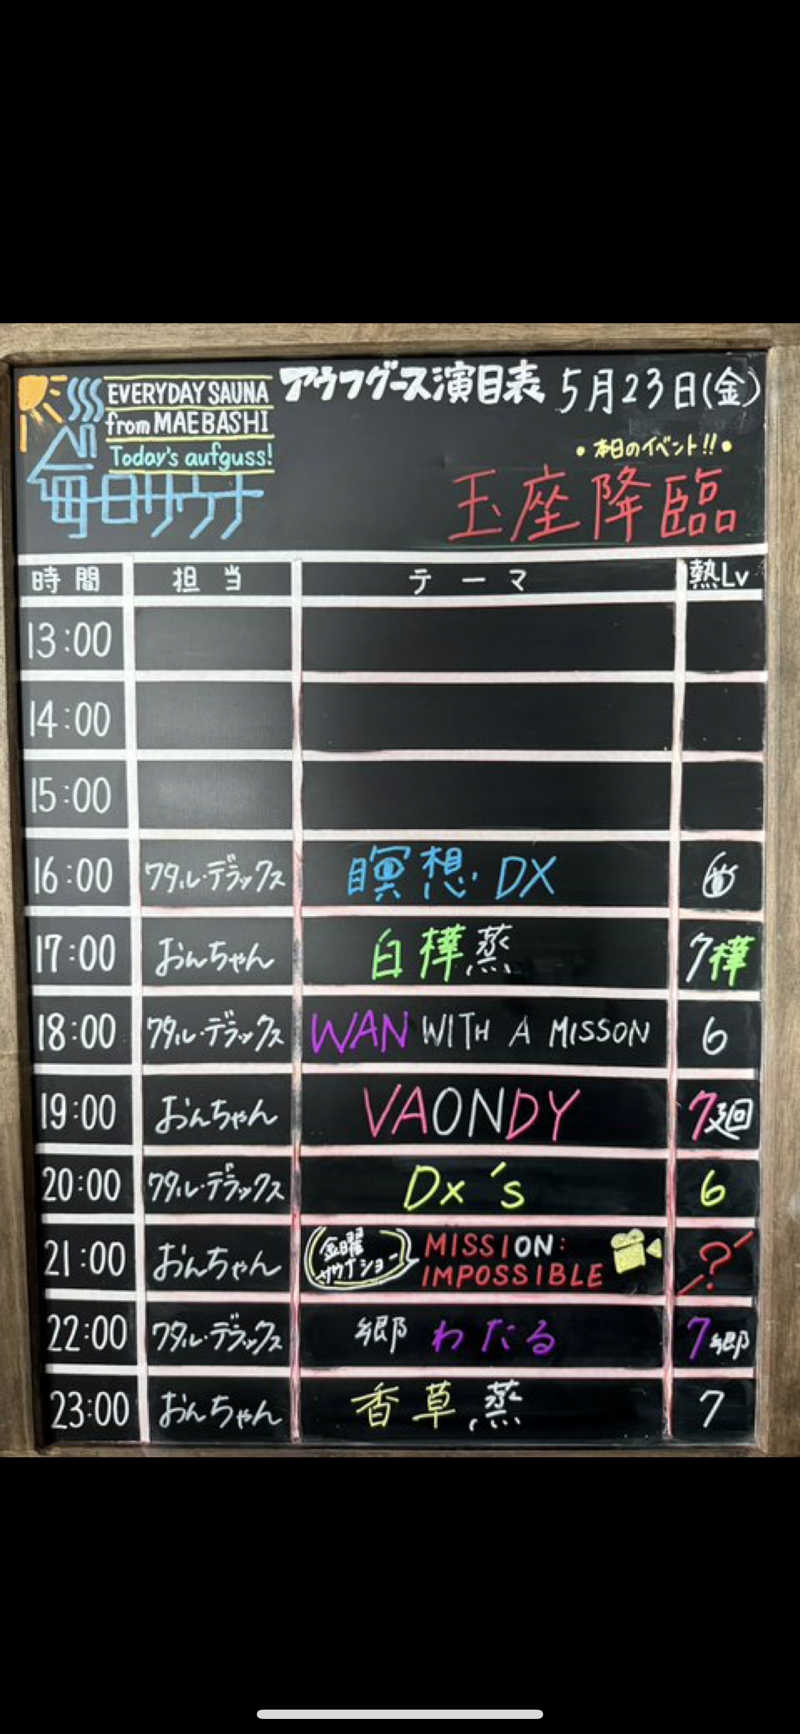 EVERYDAY SAUNA
from MAEBASHI
Today's aufguss!
毎日サウナ
アウフグース演目表 5月23日(金)
•本日のイベント!!•
玉座降臨
時間 担当 テーマ 熱Lv
13:00
14:00
15:00
16:00 ワタル・デラックス 瞑想DX
17:00 おんちゃん 白樺蒸 7樺
18:00 ワタル・デラックス WAN WITH A MISSON 6
19:00 おんちゃん VAONDY 7廻
20:00 ワタル・デラックス Dx's 6
21:00 おんちゃん 金曜サウナショー MISSION: IMPOSSIBLE ?
22:00 ワタル・デラックス 郷わたる 7郷
23:00 おんちゃん 香草蒸 7